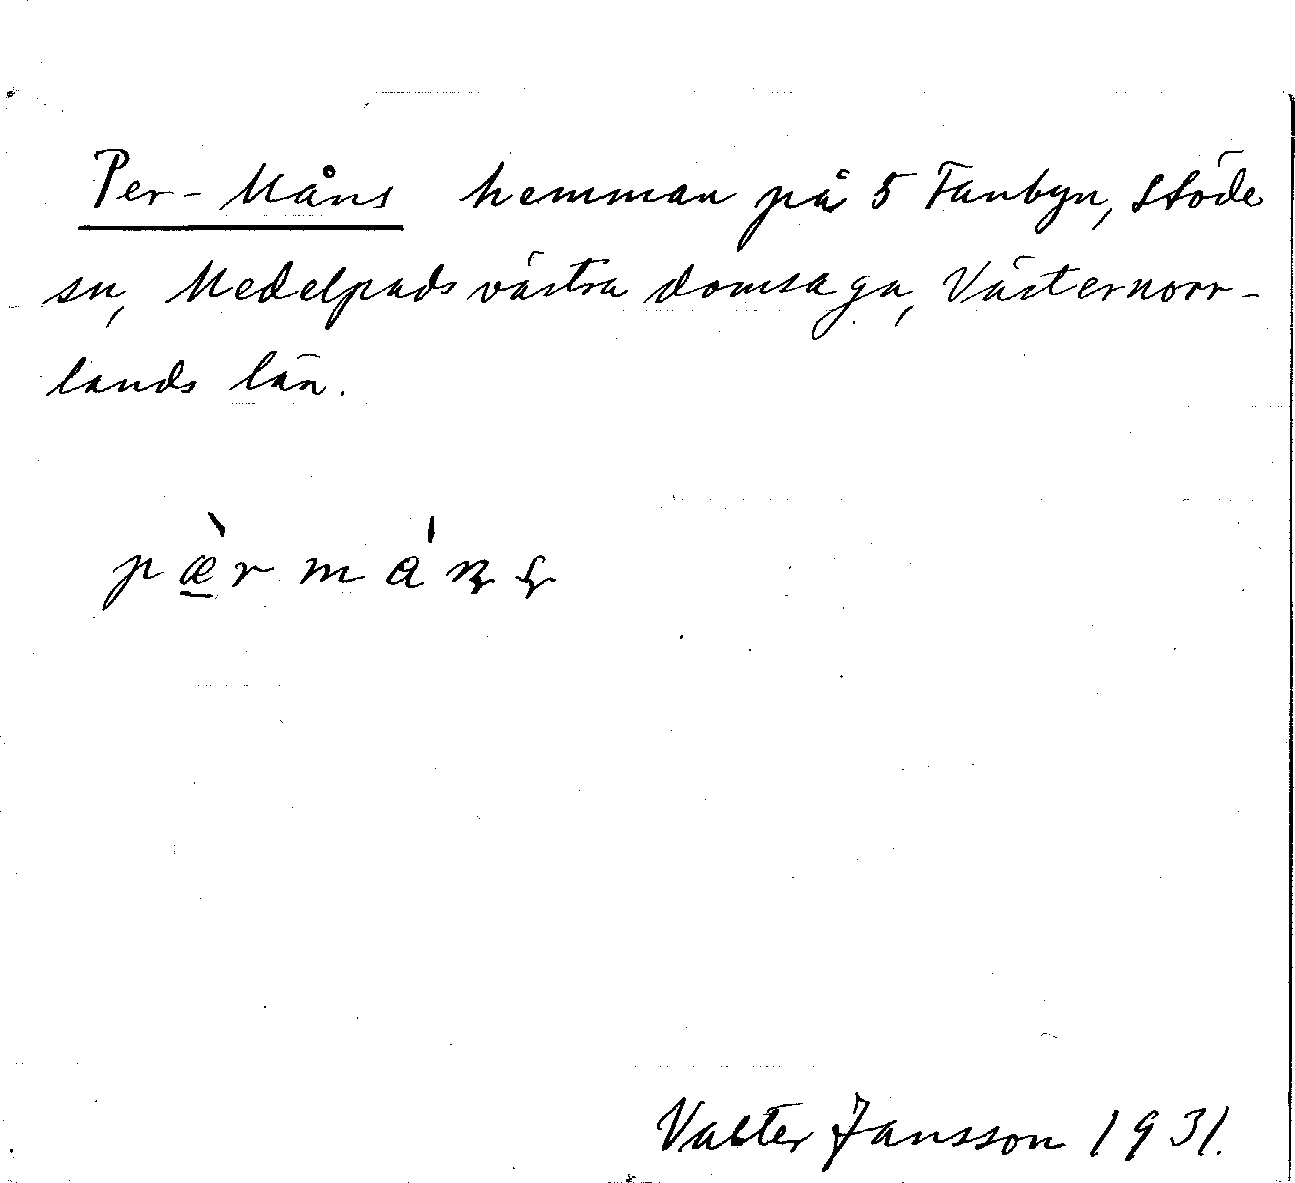 Per-Måns hemman på 5 Fanbyn, Stöde
sn, Medelpads västra domsaga, Västernorr-
lands län.
pæ̀rmáɳʂ
Valter Jansson 1931.